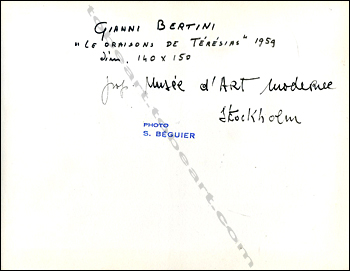 GIANNI BERTINI
"LE ORAISONS DE TÉRÉSIAS" 1959
dim. 140 x 150
prop. Musée d'Art moderne
Stockholm
PHOTO
S. BÉGUIER